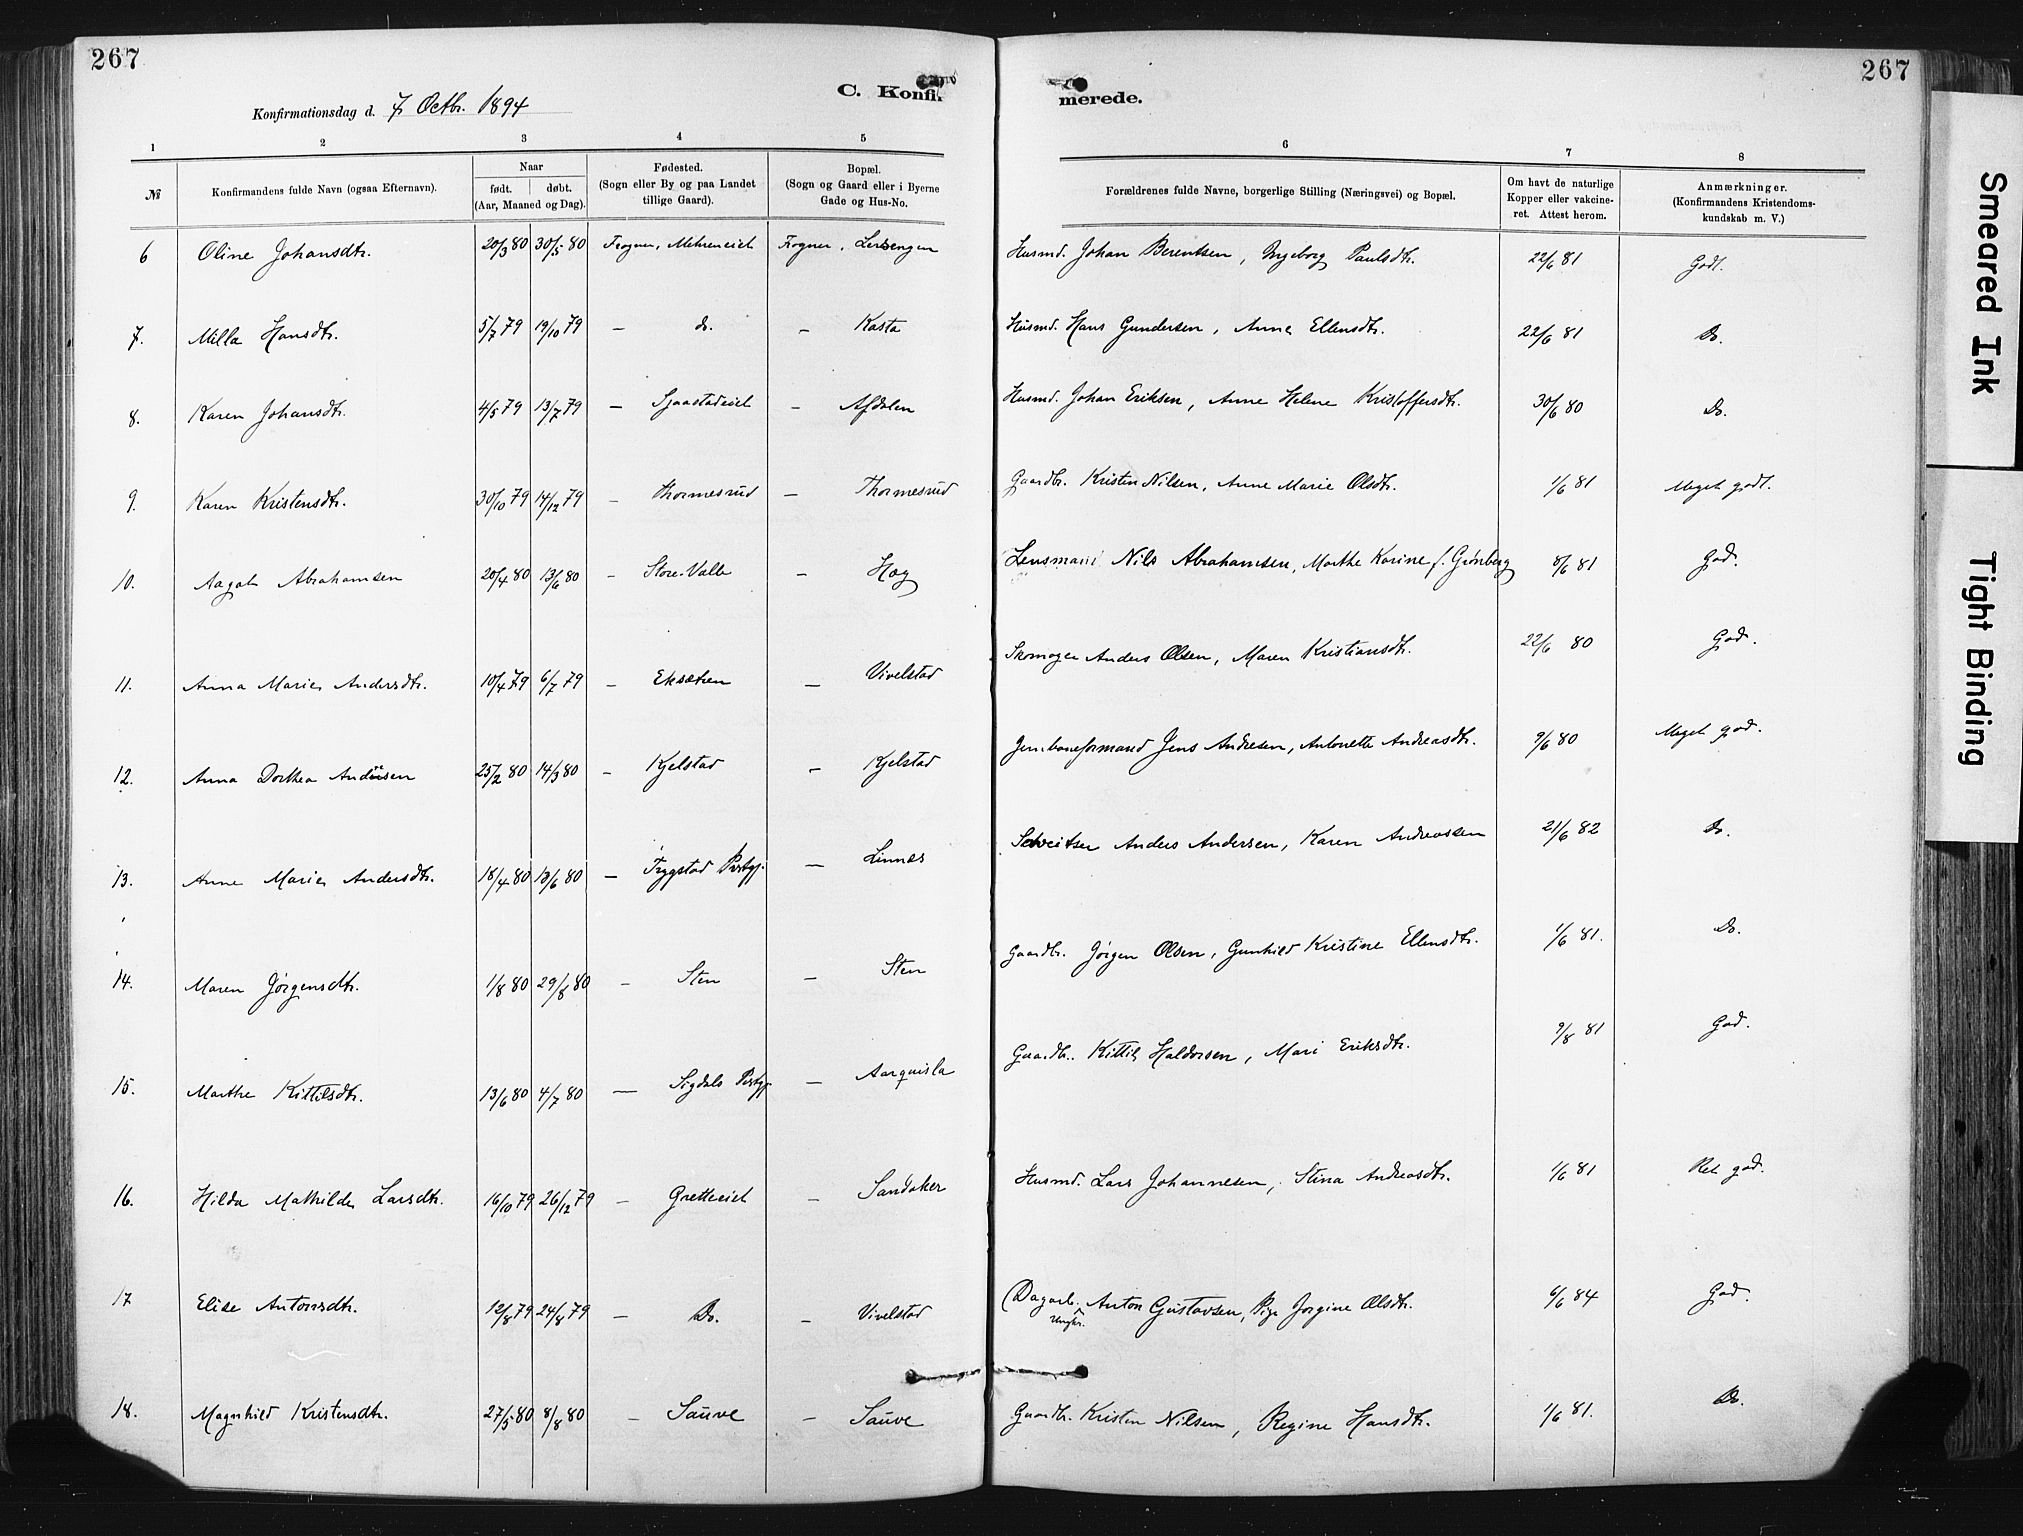 267
267
C. Konfir
merede.
Konfirmationsdag d. 7 Octbr. 1894
1 2 3 4 5 6 7 8
№ Konfirmandens fulde Navn (ogsaa Efternavn). Naar født. døbt. (Aar, Maaned og Dag). Fødested. (Sogn eller By og paa Landet tillige Gaard). Bopæl. (Sogn og Gaard eller i Byerne Gade og Hus-No. Forældrenes fulde Navne, borgerlige Stilling (Næringsvei) og Bopæl. Om havt de naturlige Kopper eller vakcineret. Attest herom. Anmærkninger. (Konfirmandens Kristendomskundskab m. V.)
6 Oline Johansdtr. 20/3 80 30/5 80 Frogner, Mehreneiet Frogner, Lersengen Husmd. Johan Berentsen, Ingeborg Paulsdtr. 22/6 81 Godt.
7. Milla Hansdtr. 5/7 79 19/10 79 – do. – Kasta Husmd. Hans Gundersen, Anne Ellensdtr. 22/6 81 Do.
8. Karen Johansdtr. 4/5 79 13/7 79 – Sjaastadeiet – Afdalen Husmd. Johan Eriksen, Anne Helene Kristoffersdtr. 30/6 80 Do.
9. Karen Kristensdtr. 30/10 79 14/12 79 – Thormesrud – Thormesrud Gaardbr. Kristen Nilsen, Anne Marie Olsdtr. 1/6 81 Meget godt.
10. Aagot Abrahamsen 20/4 80 13/6 80 – Store-Valle – Hæg Lensmand Nils Abrahamsen, Marthe Karine f. Grønberg 8/6 81 God.
11. Anna Marie Andersdtr. 10/4 79 6/7 79 – Eksætren – Vivelstad Skomager Anders Olsen, Maren Kristiansdtr. 22/6 80 God.
12. Anna Dorthea Andresen 25/2 80 14/3 80 – Kjelstad – Kjelstad Jernbaneformand Jens Andresen, Antonette Andreasdtr. 9/6 80 Meget god.
13. Anne Marie Andersdtr. 18/4 80 13/6 80 – Trygstad Prstgj. – Linnes Schveitser Anders Andersen, Karen Andreassen 21/6 82 Do.
14. Maren Jørgensdtr. 1/8 80 29/8 80 – Sten – Sten Gaardbr. Jørgen Olsen, Gunhild Kristine Ellensdtr. 1/6 81. Do.
15. Marthe Kittilsdtr. 13/6 80 4/7 80 – Sigdals Prstgj – Aarquisla Gaardbr. Kittil Haldorsen, Mari Eriksdtr. 9/8 81 God.
16. Hilda Mathilde Larsdtr. 16/10 79 26/12 79 – Gretteeiet – Sandaker Husmd. Lars Johannesen, Stina Andreasdtr. 1/6 81 Ret god.
17 Elise Antonsdtr. 12/8 79 24/8 79 – Do. – Vivelstad (Dagarb. Ungkr. Anton Gustavsen, Pige Jorgine Olsdtr. 6/6 84 God.
18. Magnhild Kristensdtr. 27/5 80 8/8 80 – Sauve – Sauve Gaardbr. Kristen Nilsen, Regine Hansdtr. 1/6 81. Do.
Smeared Ink
Tight Binding